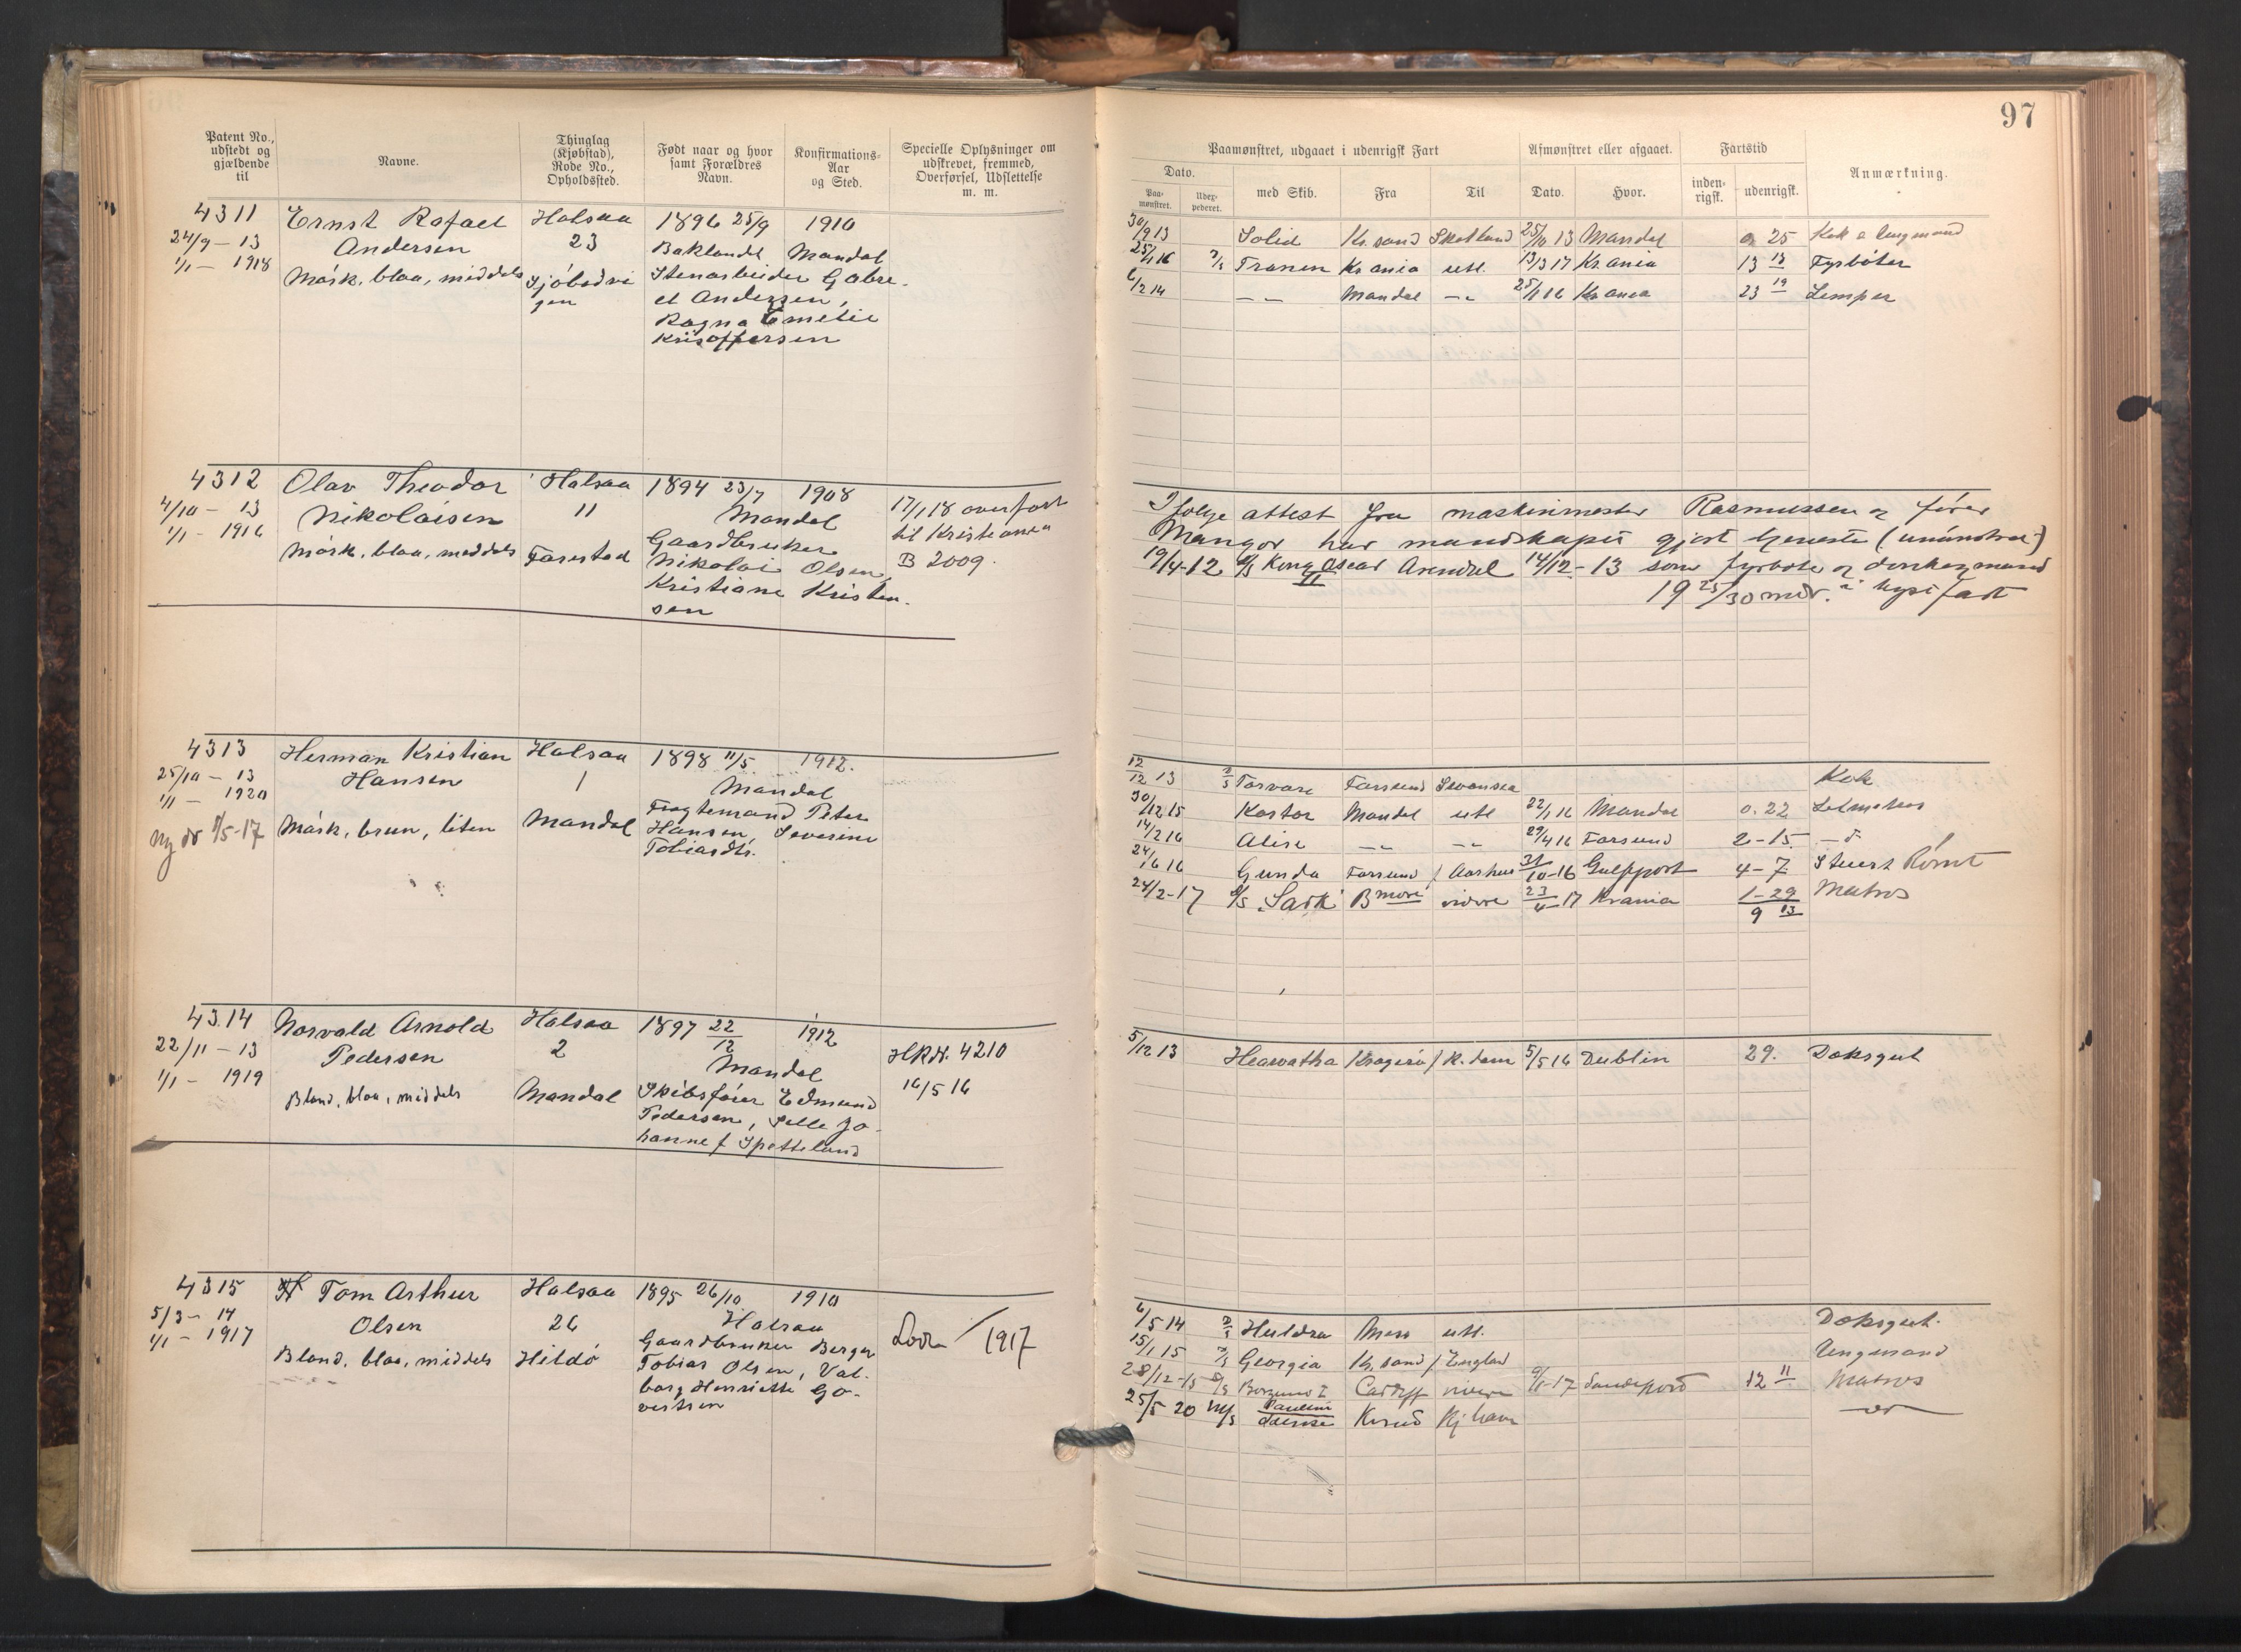 97
Patent No., udstedt og gjældende til
Navne.
Thinglag (Kjøbstad), Rode No., Opholdssted.
Født naar og hvor samt Forældres Navn.
Konfirmations-Aar og Sted.
Specielle Oplysninger om udskrevet, fremmed, Overførsel, Udslettelse m. m.
Paamønstret, udgaaet i udenrigsk Fart
Afmønstret eller afgaaet.
Fartstid
Anmærkning.
Dato.
Paa-mønstret.
med Skib.
Fra
Til
Dato.
Hvor.
inden-rigsk.
udenrigsk.
4311 Ernst Rafael Halsaa 1896 25/9 1910
24/9 - 13 Andersen 23 Baklandet Mandal
1/1 - 1918 Mørk, blaa, middels Sjøbodvi Stenarbeider Gabri-
gen el Andersen,
Ragna Emelie
Kristoffersen
30/9 13 Solid Kr.sand Skotland 25/10 13 Mandal 0 25 Kok o Ungmand
25/1 16 Tranen Kr.ania utl. 13/3 17 Kr.ania 13 18 Fyrbøter
6/2 14 -"- Mandal -"- 25/1 16 Kr.ania 23 19 Lemper
4312 Olav Theodor Halsaa 1894 23/7 1908
4/10 - 13 Nikolaisen 11 Mandal 17/1 18 overført
1/1 - 1916 Mørk, blaa, middels Farestad Gaardbruker til Kristiania
Nikolai Olsen, B 2009.
Kristiane Kristen-
sen
Ifølge attest fra maskinmester Rasmussen og fører
Mangor har mandskapet gjort tjeneste
19/4-12 D/S Kong Oscar II Arendal 14/12-13 som fyrbøter og donkeymand
19 25/30 mdr. i kystfart
4313 Herman Kristian Halsaa 1898 11/5 1912.
25/10 - 13 Hansen 1 Mandal
1/1 - 1920 Mørk, brun, liten Mandal Fragtemand Peter
Hansen, Severine
Tobiasdtr.
12/12 13 Torvore Farsund Swansea Kok
30/12 15 Kastor Mandal utl 22/1 16 Mandal 0.22 Letmatros
14/2 16 Alise -"- -"- 29/4 16 Farsund 2-15 -"-
24/6 16 Gunda Farsund / Aarhus 31/10-16 Gulfport 4-7
24/2-17 Sark Bmore videre 23/4-17 Krania 1-29 Matros
9 13
4314 Norvald Arnold Halsaa 1897 22/12 1912
22/11 - 13 Pedersen 2 Mandal HRN. 4210
1/1 - 1919 Blond, blaa, middels Mandal Skibsfører Edmund 16/5 16
Pedersen, Selle Jo-
hanne f Spetteland
5/12 13 Heawatha Kragerø / R.dam 5/5 16 Dublin 29. Dæksgut
4315 Tom Arthur Halsaa 1895 26/10 1910
5/3 - 14 Olsen 26 Halsaa
1/1 - 1917 Blond, blaa, middels Hildø Gaardbruker Berger 1917
Tobias Olsen, Val-
borg Henriette Go-
vertsen
6/5 14 Huldra Moss utl. Dæksgut.
15/1 15 Georgia Kr.sand / England Ungmand
28/12-15 Cardiff videre Sandefjord 12 11 Matros
25/5 20 M/S Krsund Kjhavn